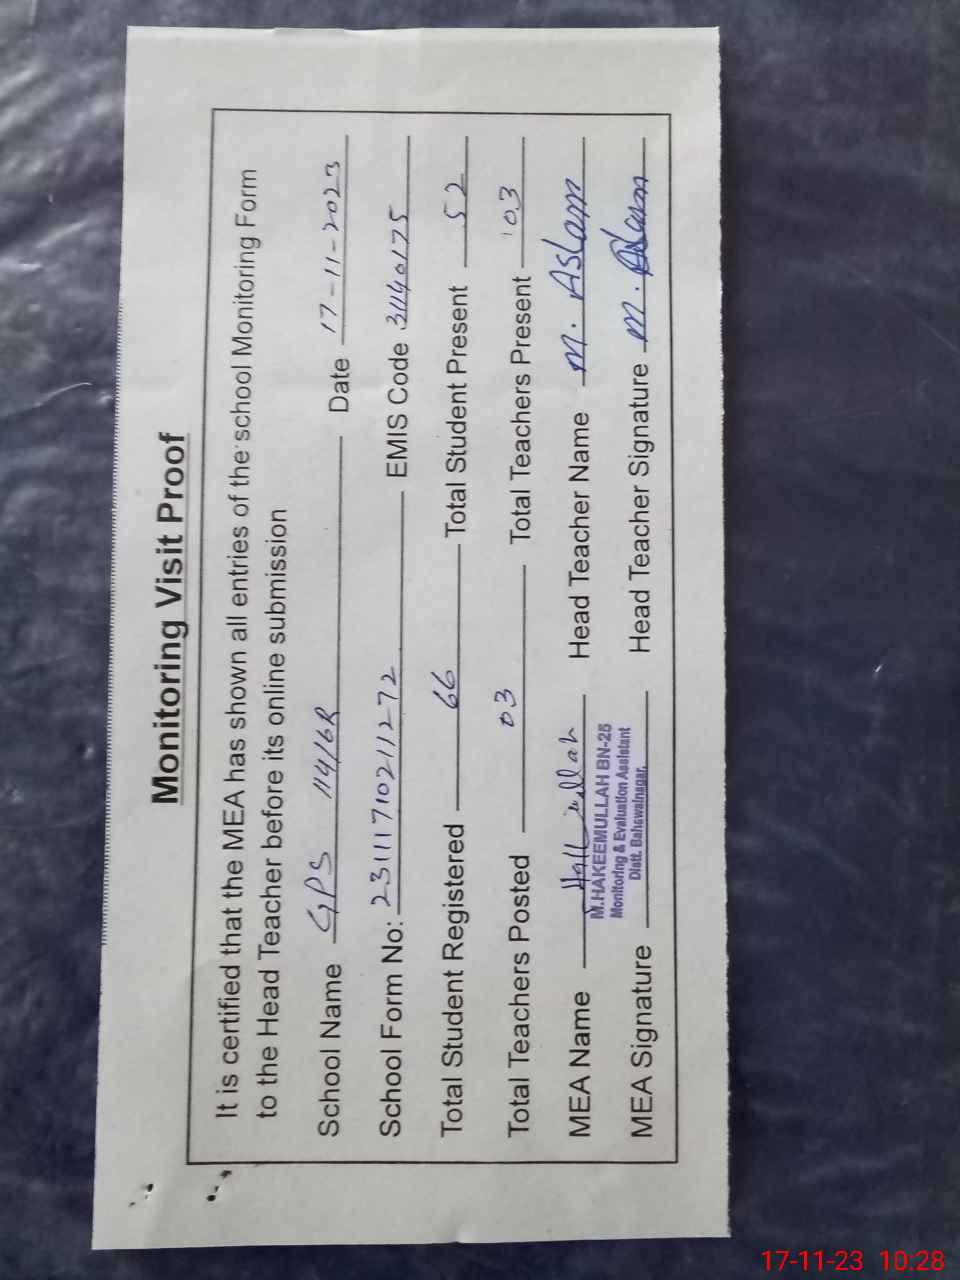 Monitoring Visit Proof
It is certified that the MEA has shown all entries of the school Monitoring Form
to the Head Teacher before its online submission
School Name GPS 114/6R Date 17-11-2023
School Form No: 231117102111272 EMIS Code 31140175
Total Student Registered 66 Total Student Present 52
Total Teachers Posted 03 Total Teachers Present 03
MEA Name Head Teacher Name M. Aslam
M.HAKEEMULLAH BN-25
Monitoring & Evaluation Assistant
Distt. Bahawalnagar.
MEA Signature Head Teacher Signature M. Aslam
17-11-23 10:28